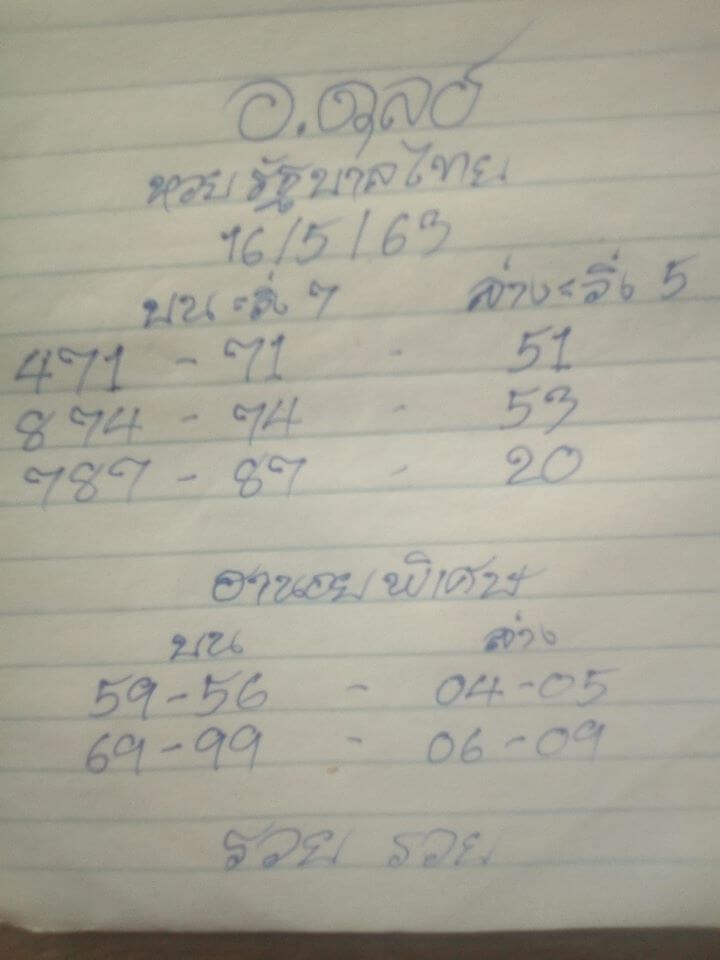 อ.ดุลย์
หวยรัฐบาลไทย
16/5/63
บน=วิ่ง 7 ล่าง=วิ่ง 5
471 - 71 - 51
874 - 74 - 53
787 - 87 - 20
ฮานอยพิเศษ
บน ล่าง
59-56 - 04-05
69-99 - 06-09
รวย รวย